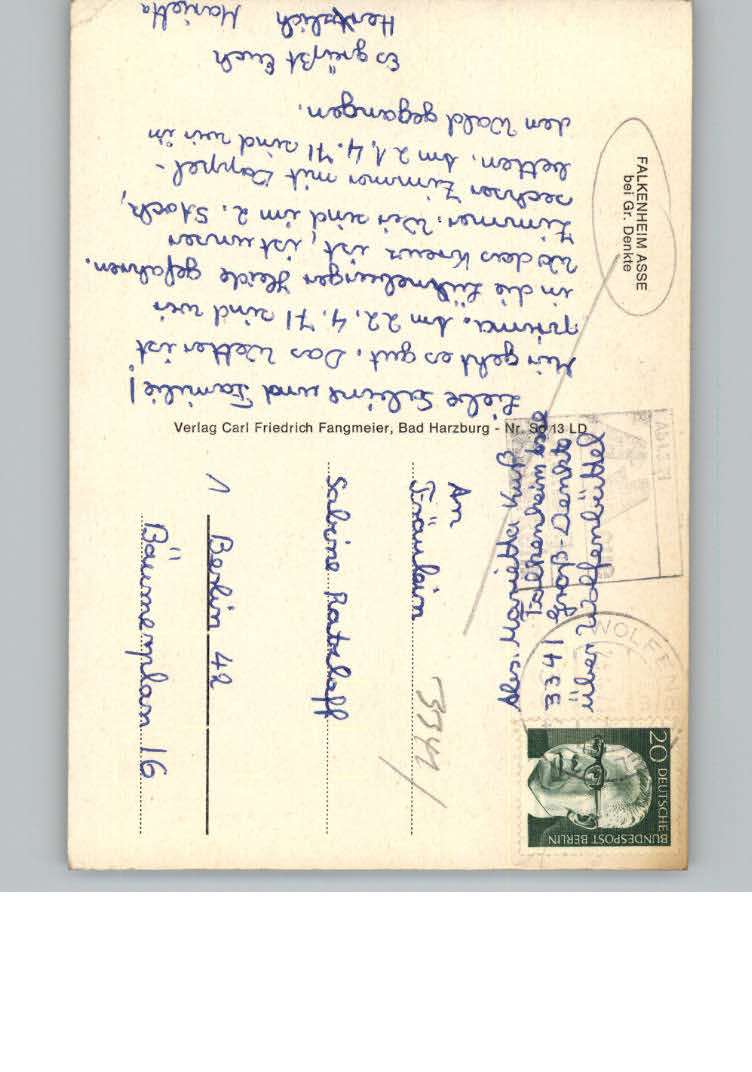 FALKENHEIM ASSE
bei Gr. Denkte
Liebe Sabine und Familie!
Mir geht es gut. Das Wetter ist
prima. Am 22.4.71 sind wir
in die Lüneburger Heide gefahren.
Wo das Kreuz ist, ist unser
Zimmer. Wir sind im 2. Stock,
sechser Zimmer mit Doppel-
betten. Am 21.4.71 sind wir in
den Wald gegangen.
Es grüßt Euch
Herzlich Marietta
Verlag Carl Friedrich Fangmeier, Bad Harzburg - Nr. So 13 LD
Abs. Marietta
Falkenheim
3341 Groß-Denkte
über Wolfenbüttel
WOLFENB
20 DEUTSCHE
BUNDESPOST BERLIN
An
Fräulein
3341
Sabine Ratzlaff
1 Berlin 42
Bäumerplan 16